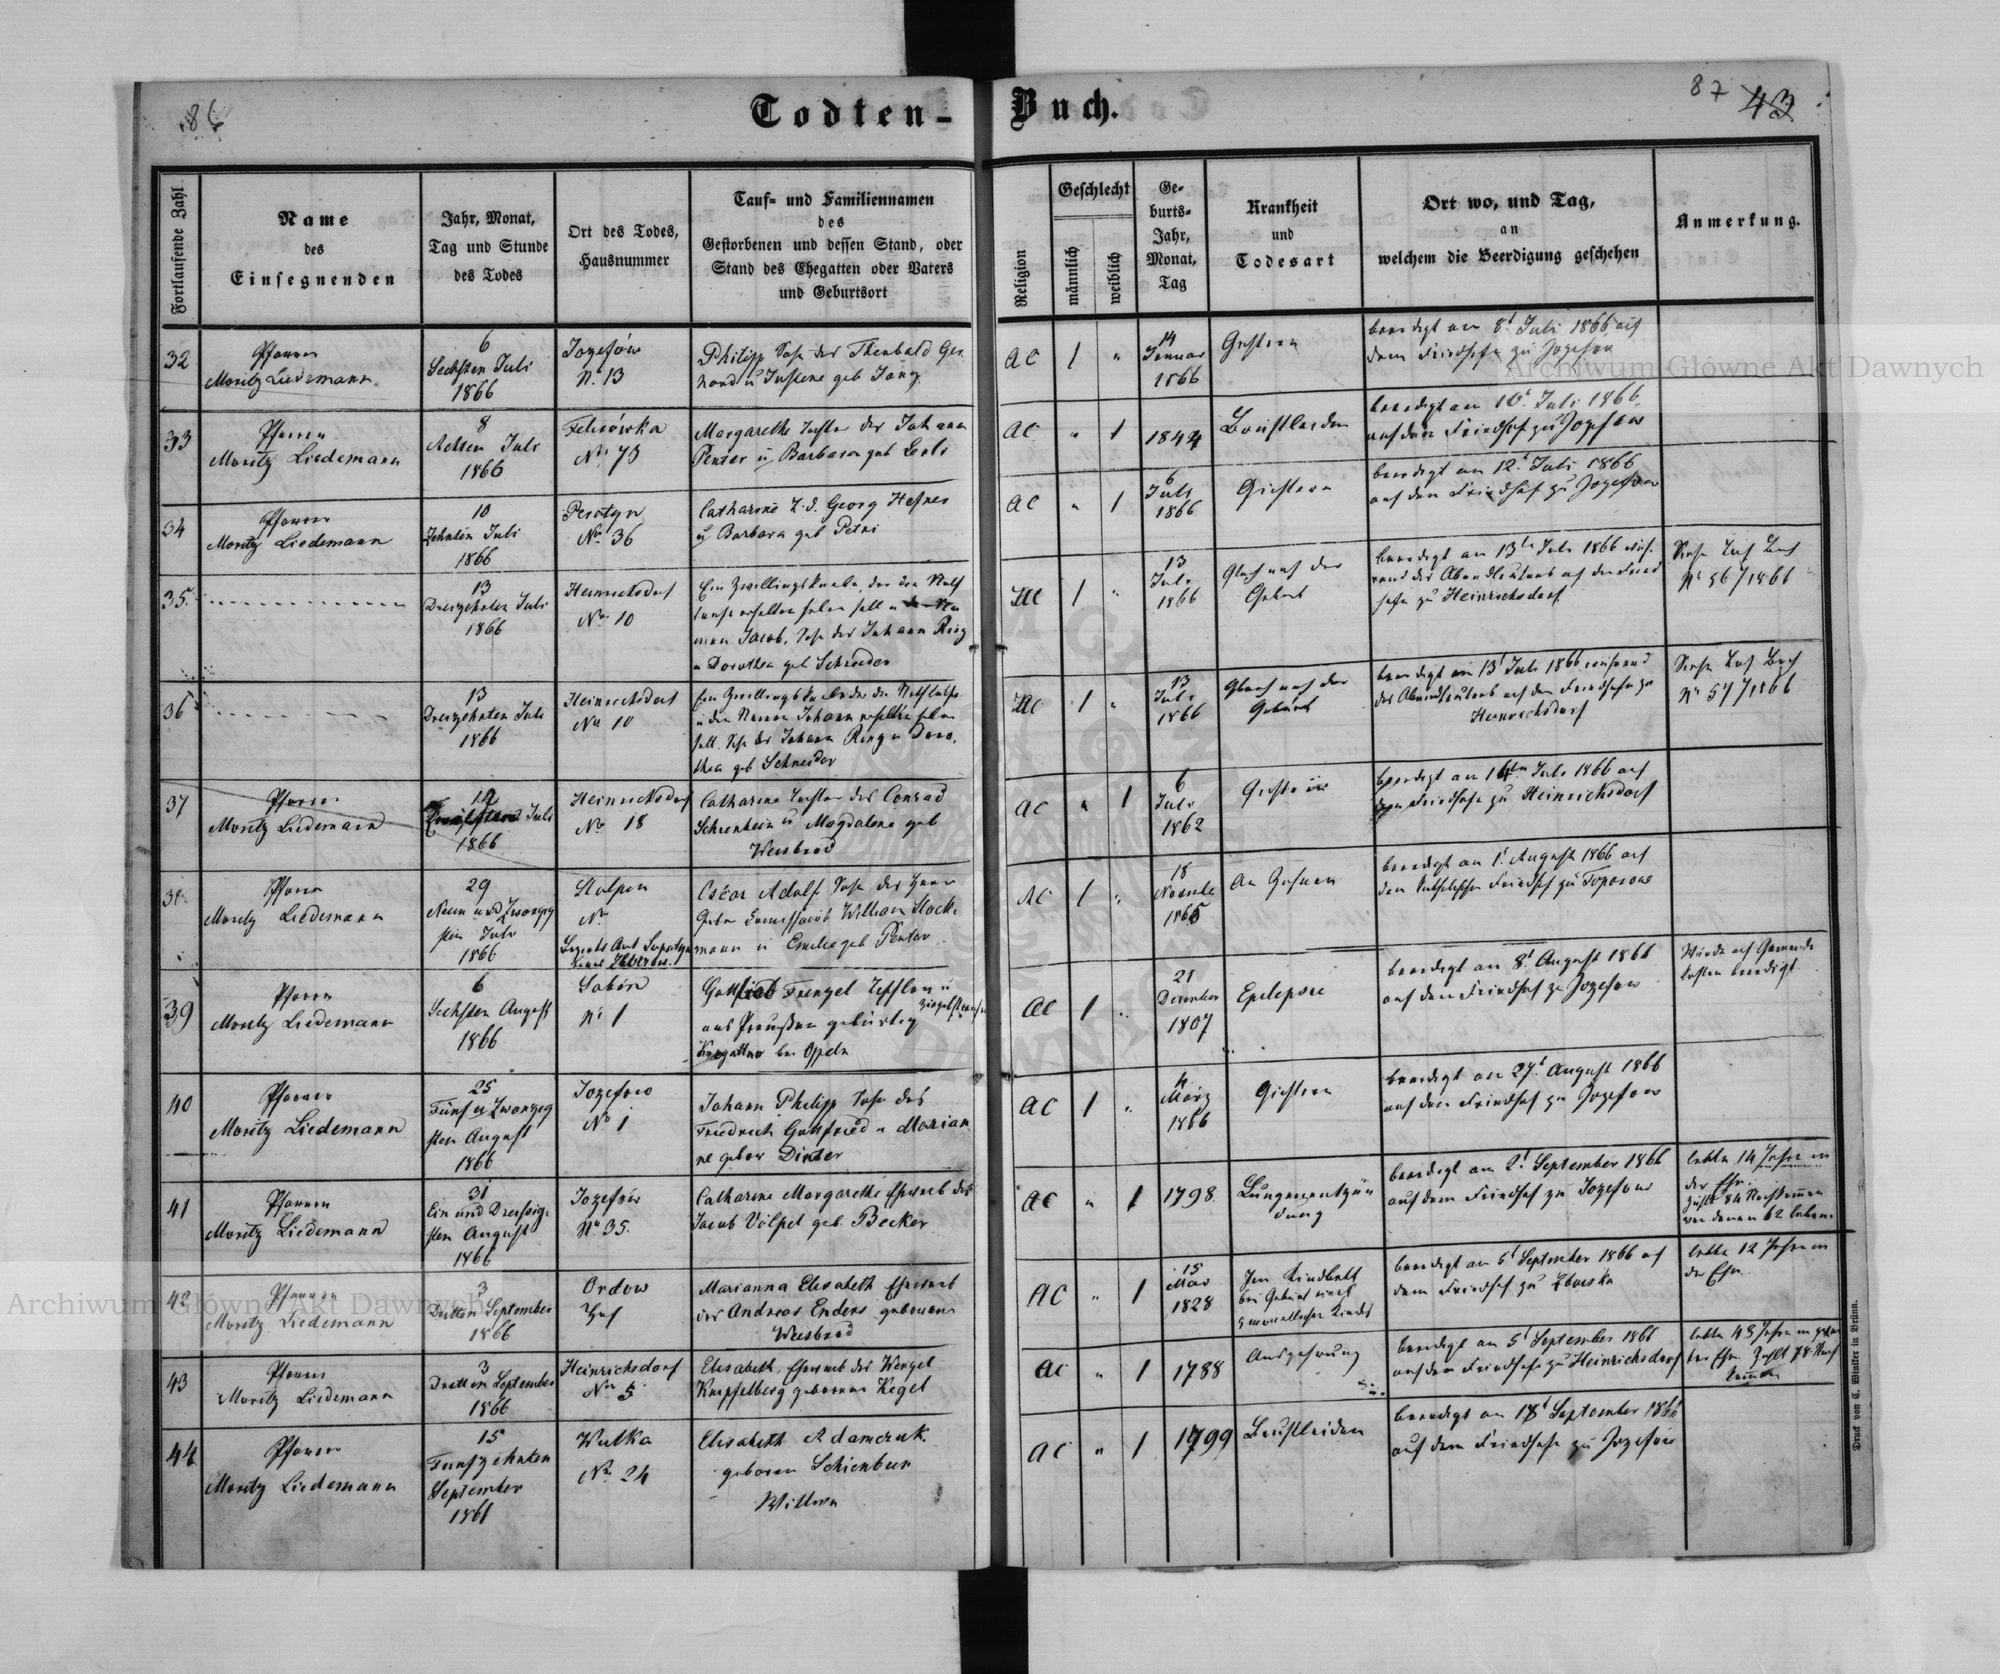 86
Todten-
Buch.
87
43
Fortlaufende Zahl
Name
des
Einsegnenden
Jahr, Monat,
Tag und Stunde
des Todes
Ort des Todes,
Hausnummer
Tauf- und Familiennamen
des
Gestorbenen und dessen Stand, oder
Stand des Ehegatten oder Vaters
und Geburtsort
Religion
Geschlecht
männlich
weiblich
Ge-
burts-
Jahr,
Monat,
Tag
Krankheit
und
Todesart
Ort wo, und Tag,
an
welchem die Beerdigung geschehen
Anmerkung.
32
Pfarrer
Moritz Liedemann
6
Sechsten Juli
1866
Jozefów
N. 13
Philipp Sohn des Theobald
u Justine geb Jang
AC
1
"
14
Januar
1866
beerdigt am 8t Juli 1866 auf
dem Friedhofe zu Jozefow
33
Pfarrer
Moritz Liedemann
8
Achten Juli
1866
Felizówka
No 73
Margarethe Tochter des Johann
Penter u Barbara geb
AC
"
1
1844
Brustleiden
beerdigt am 10t Juli 1866
auf dem Friedhof zu Jozefow
34
Pfarrer
Moritz Liedemann
10
Zehnten Juli
1866
Peratyn
No 36
Catharine T. d. Georg Hefner
u Barbara geb Petri
AC
"
1
6
Juli
1866
beerdigt am 12t Juli 1866
auf dem Friedhof zu Jozefow
35.
13
Dreizehnten Juli
1866
Heinrichsdorf
No 10
Ein Zwillingsknabe, der die Noth
taufe erhalten haben soll u den Na
men Jacob, Sohn des Johann Ring
u Dorothea geb Schneider
1
"
13
Juli
1866
Gleich nach der
Geburt
beerdigt am 13ten Juli 1866 wäh-
rend des Abendläutens auf dem Fried
hofe zu Heinrichsdorf
Siehe Tauf Buch
No 56/1866
36
13
Dreizehnten Juli
1866
Heinrichsdorf
No 10
Ein Zwillingsknabe der die Nothtaufe
u den Namen Johann erhalten haben
soll. Sohn des Johann Ring u Doro-
thea geb Schneider
1
"
13
Juli
1866
Gleich nach der
Geburt
beerdigt am 13t Juli 1866 während
des Abendläutens auf dem Friedhofe zu
Heinrichsdorf
Siehe Tauf Buch
No 57/1866
37
Pfarrer
Moritz Liedemann
Juli
1866
Heinrichsdorf
No 18
Catharine Tochter des Conrad
u Magdalena geb
Weisbrod
AC
"
1
6
Juli
1862
beerdigt am Juli 1866 auf
dem Friedhofe zu Heinrichsdorf
38
Pfarrer
Moritz Liedemann
29
Neun und Zwanzig
sten Juli
1866
Stolpin
No
Oscar Adolf Sohn des Herrn
William Stock-
mann u Emilie geb Penter
AC
1
"
18
An Zahnen
beerdigt am 1t August 1866 auf
dem Friedhof zu Toporow
39
Pfarrer
Moritz Liedemann
6
Sechsten August
1866
No 1
Gottlieb Frenzel
aus Preußen gebürtig
bei Oppeln
AC
1
"
21
Dezember
1807
Epilepsie
beerdigt am 8t August 1866
auf dem Friedhof zu Jozefow
Wurde auf Gemeinde
kosten beerdigt
40
Pfarrer
Moritz Liedemann
25
Fünf u Zwanzig
sten August
1866
Jozefow
No 1
Johann Philipp Sohn des
Friedrich Gottfried u Marian
ne geborne Dinter
AC
1
"
März
1866
beerdigt am 27t August 1866
auf dem Friedhof zu Jozefow
41
Pfarrer
Moritz Liedemann
31
Ein und Dreissig-
sten August
1866
Jozefów
No 35.
Catharine Margarethe Eheweib des
Jacob Völpel geb Becker
AC
"
1
1798
Lungenentzün
dung
beerdigt am 2t September 1866
auf dem Friedhof zu Jozefow
lebte 14 Jahre in
der Ehe.
zählte 84 Nachkommen
von denen 62 leben
42
Pfarrer
Moritz Liedemann
3
Dritten September
1866
Ordow
Hof
Marianna Elisabeth Eheweib
des Andreas Enders geborne
Weisbrod
AC
"
1
15
1828
Im Kindbett
bei Geburt eines
Kindes
beerdigt am 5t September 1866 auf
dem Friedhof zu
lebte 12 Jahre in
der Ehe
43
Pfarrer
Moritz Liedemann
3
Dritten September
1866
Heinrichsdorf
No 5
Elisabeth, Eheweib des Wenzel
Knipfelberg geborne Kegel
AC
"
1
1788
Auszehrung
beerdigt am 5t September 1866
auf dem Friedhofe zu Heinrichsdorf
44
Pfarrer
Moritz Liedemann
15
Funfzehnten
September
1866
Wulka
No 24
Elisabeth Adamczuk
geboren
Wittwe
AC
"
1
1799
Brustleiden
beerdigt am 18t September 1866
auf dem Friedhofe zu Jozefów
Druck von C. Winiker in Brünn.
Archiwum Główne Akt Dawnych
Archiwum Główne Akt Dawnych